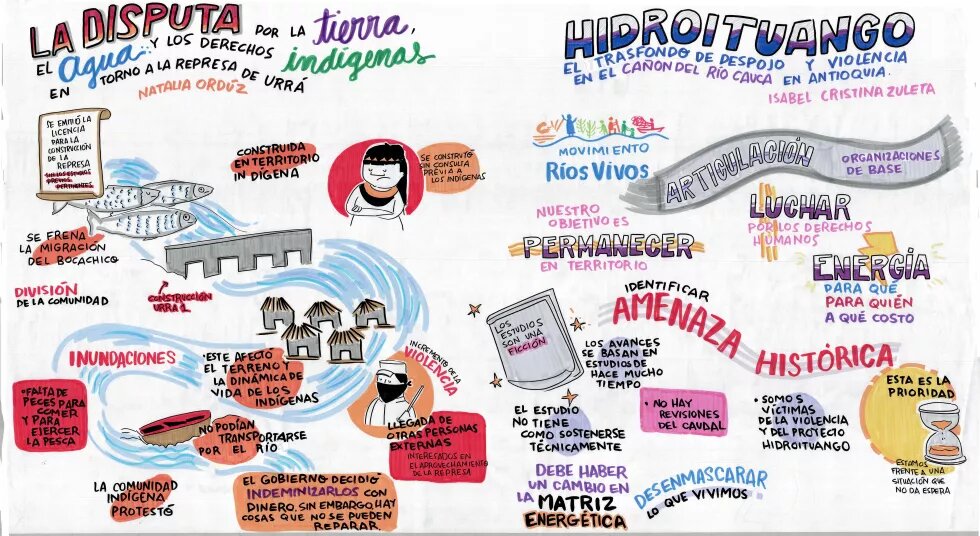 LA DISPUTA POR LA tierra,
EL agua.. Y LOS DERECHOS indígenas
EN TORNO A LA REPRESA DE URRÁ
NATALIA ORDÚZ
SE EMITIÓ LA
LICENCIA
PARA LA
CONSTRUCCIÓN
DE LA
REPRESA
SIN LOS ESTUDIOS
PREVIOS
PERTINENTES
CONSTRUIDA
EN TERRITORIO
INDÍGENA
SE CONSTRUYÓ
SIN CONSULTA
PREVIA A
LOS INDÍGENAS
SE FRENA
LA MIGRACIÓN
DEL BOCACHICO
DIVISIÓN
DE LA COMUNIDAD
CONSTRUCCIÓN
URRA 1
INUNDACIONES
• ESTE AFECTO
EL TERRENO Y
LA DINÁMICA DE
VIDA DE LOS
INDÍGENAS
INCREMENTO DE LA
VIOLENCIA
• FALTA DE
PECES PARA
COMER
Y PARA
EJERCER
LA PESCA
NO PODÍAN
TRANSPORTARSE
POR EL RÍO
LLEGADA DE
OTRAS PERSONAS
EXTERNAS
INTERESADOS EN
EL APROVECHAMIENTO
DE LA REPRESA
LA COMUNIDAD
INDÍGENA
PROTESTÓ
EL GOBIERNO DECIDIÓ
INDEMNIZARLOS CON
DINERO, SIN EMBARGO, HAY
COSAS QUE NO SE PUEDEN
REPARAR.
HIDROITUANGO
EL TRASFONDO DE DESPOJO Y VIOLENCIA
EN EL CAÑON DEL RÍO CAUCA EN ANTIOQUIA.
ISABEL CRISTINA ZULETA
MOVIMIENTO
RÍOS VIVOS
ARTICULACIÓN
ORGANIZACIONES
DE BASE
NUESTRO
OBJETIVO ES
PERMANECER
EN TERRITORIO
LUCHAR
POR LOS DERECHOS
HUMANOS
ENERGÍA
PARA QUÉ
PARA QUIÉN
A QUÉ COSTO
IDENTIFICAR
AMENAZA
HISTÓRICA
LOS
ESTUDIOS
SON UNA
FICCIÓN
LOS AVANCES
SE BASAN EN
ESTUDIOS DE
HACE MUCHO
TIEMPO
EL ESTUDIO
NO TIENE
COMO SOSTENERSE
TÉCNICAMENTE
• NO HAY
REVISIONES
DEL CAUDAL
• SOMOS
VÍCTIMAS
DE LA VIOLENCIA
Y DEL PROYECTO
HIDROITUANGO
ESTA ES LA
PRIORIDAD
ESTAMOS
FRENTE A UNA
SITUACIÓN QUE
NO DA ESPERA
DEBE HABER
UN CAMBIO EN
LA MATRIZ
ENERGÉTICA
DESENMASCARAR
LO QUE VIVIMOS